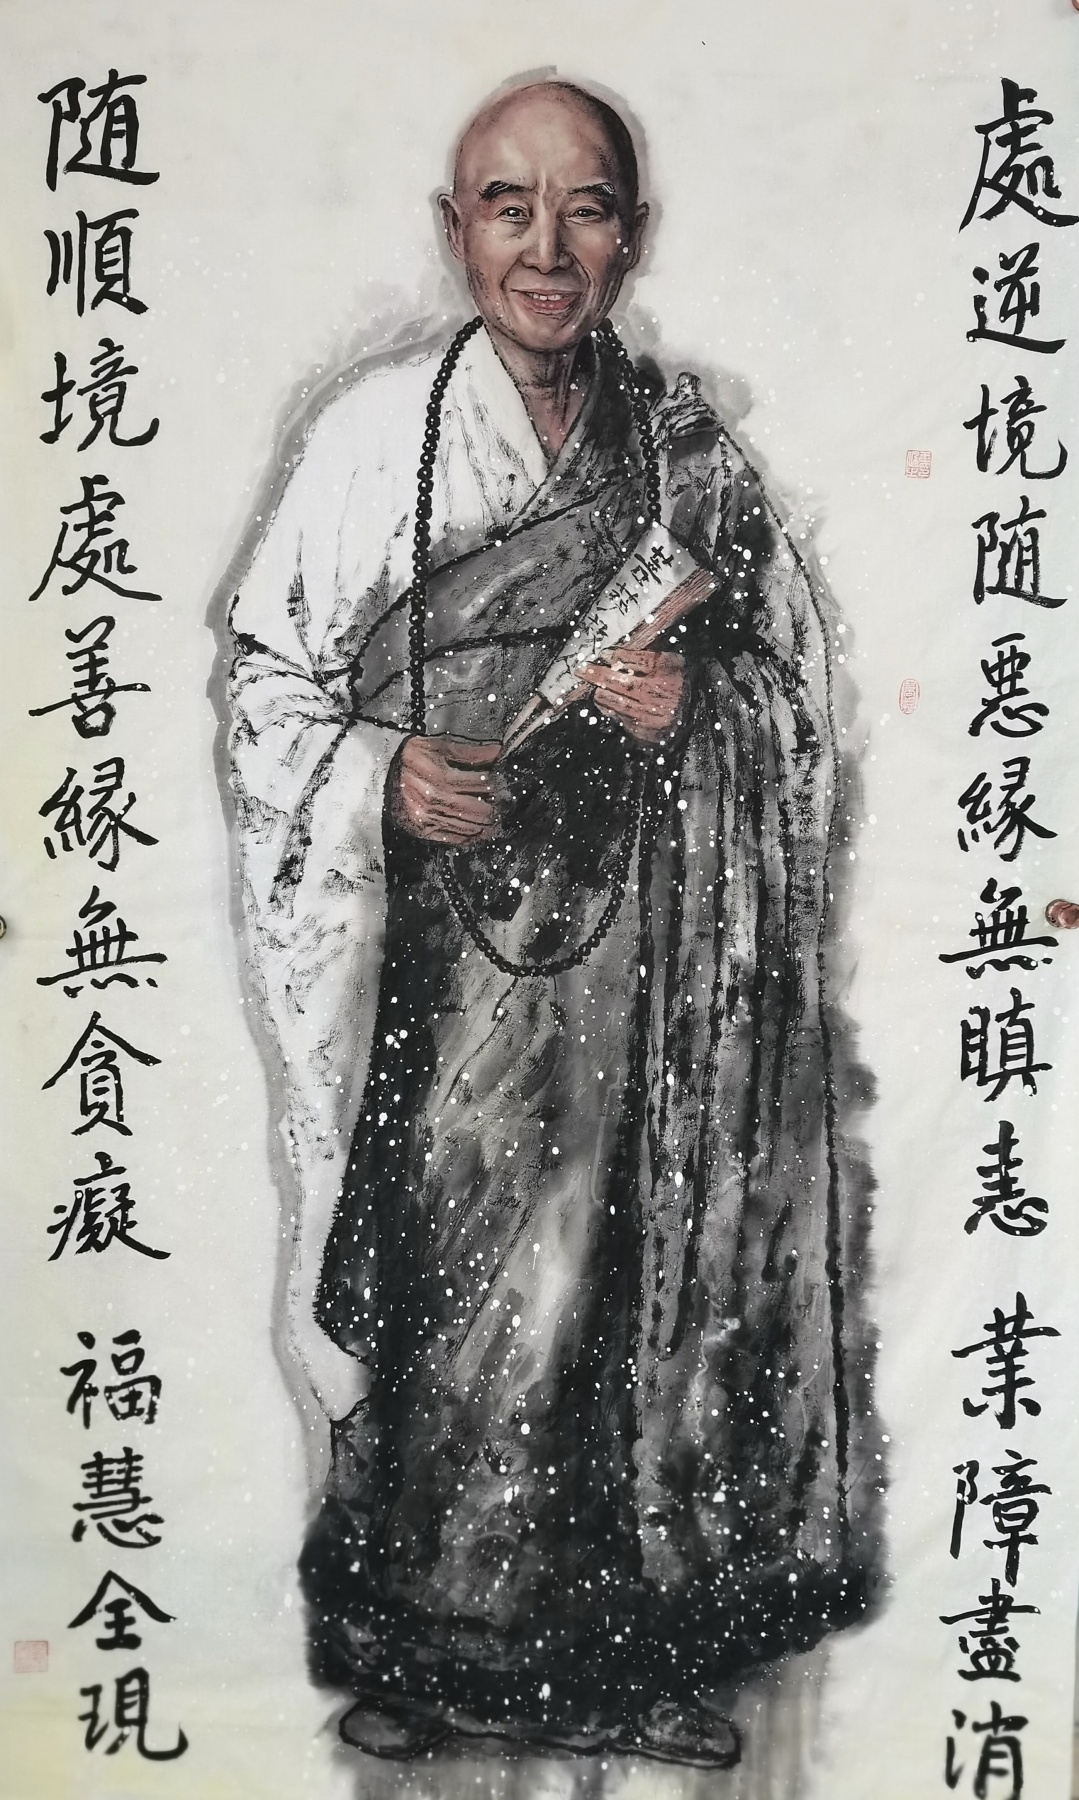 處逆境随惡緣無瞋恚 業障盡消
随順境處善緣無貪癡 福慧全現